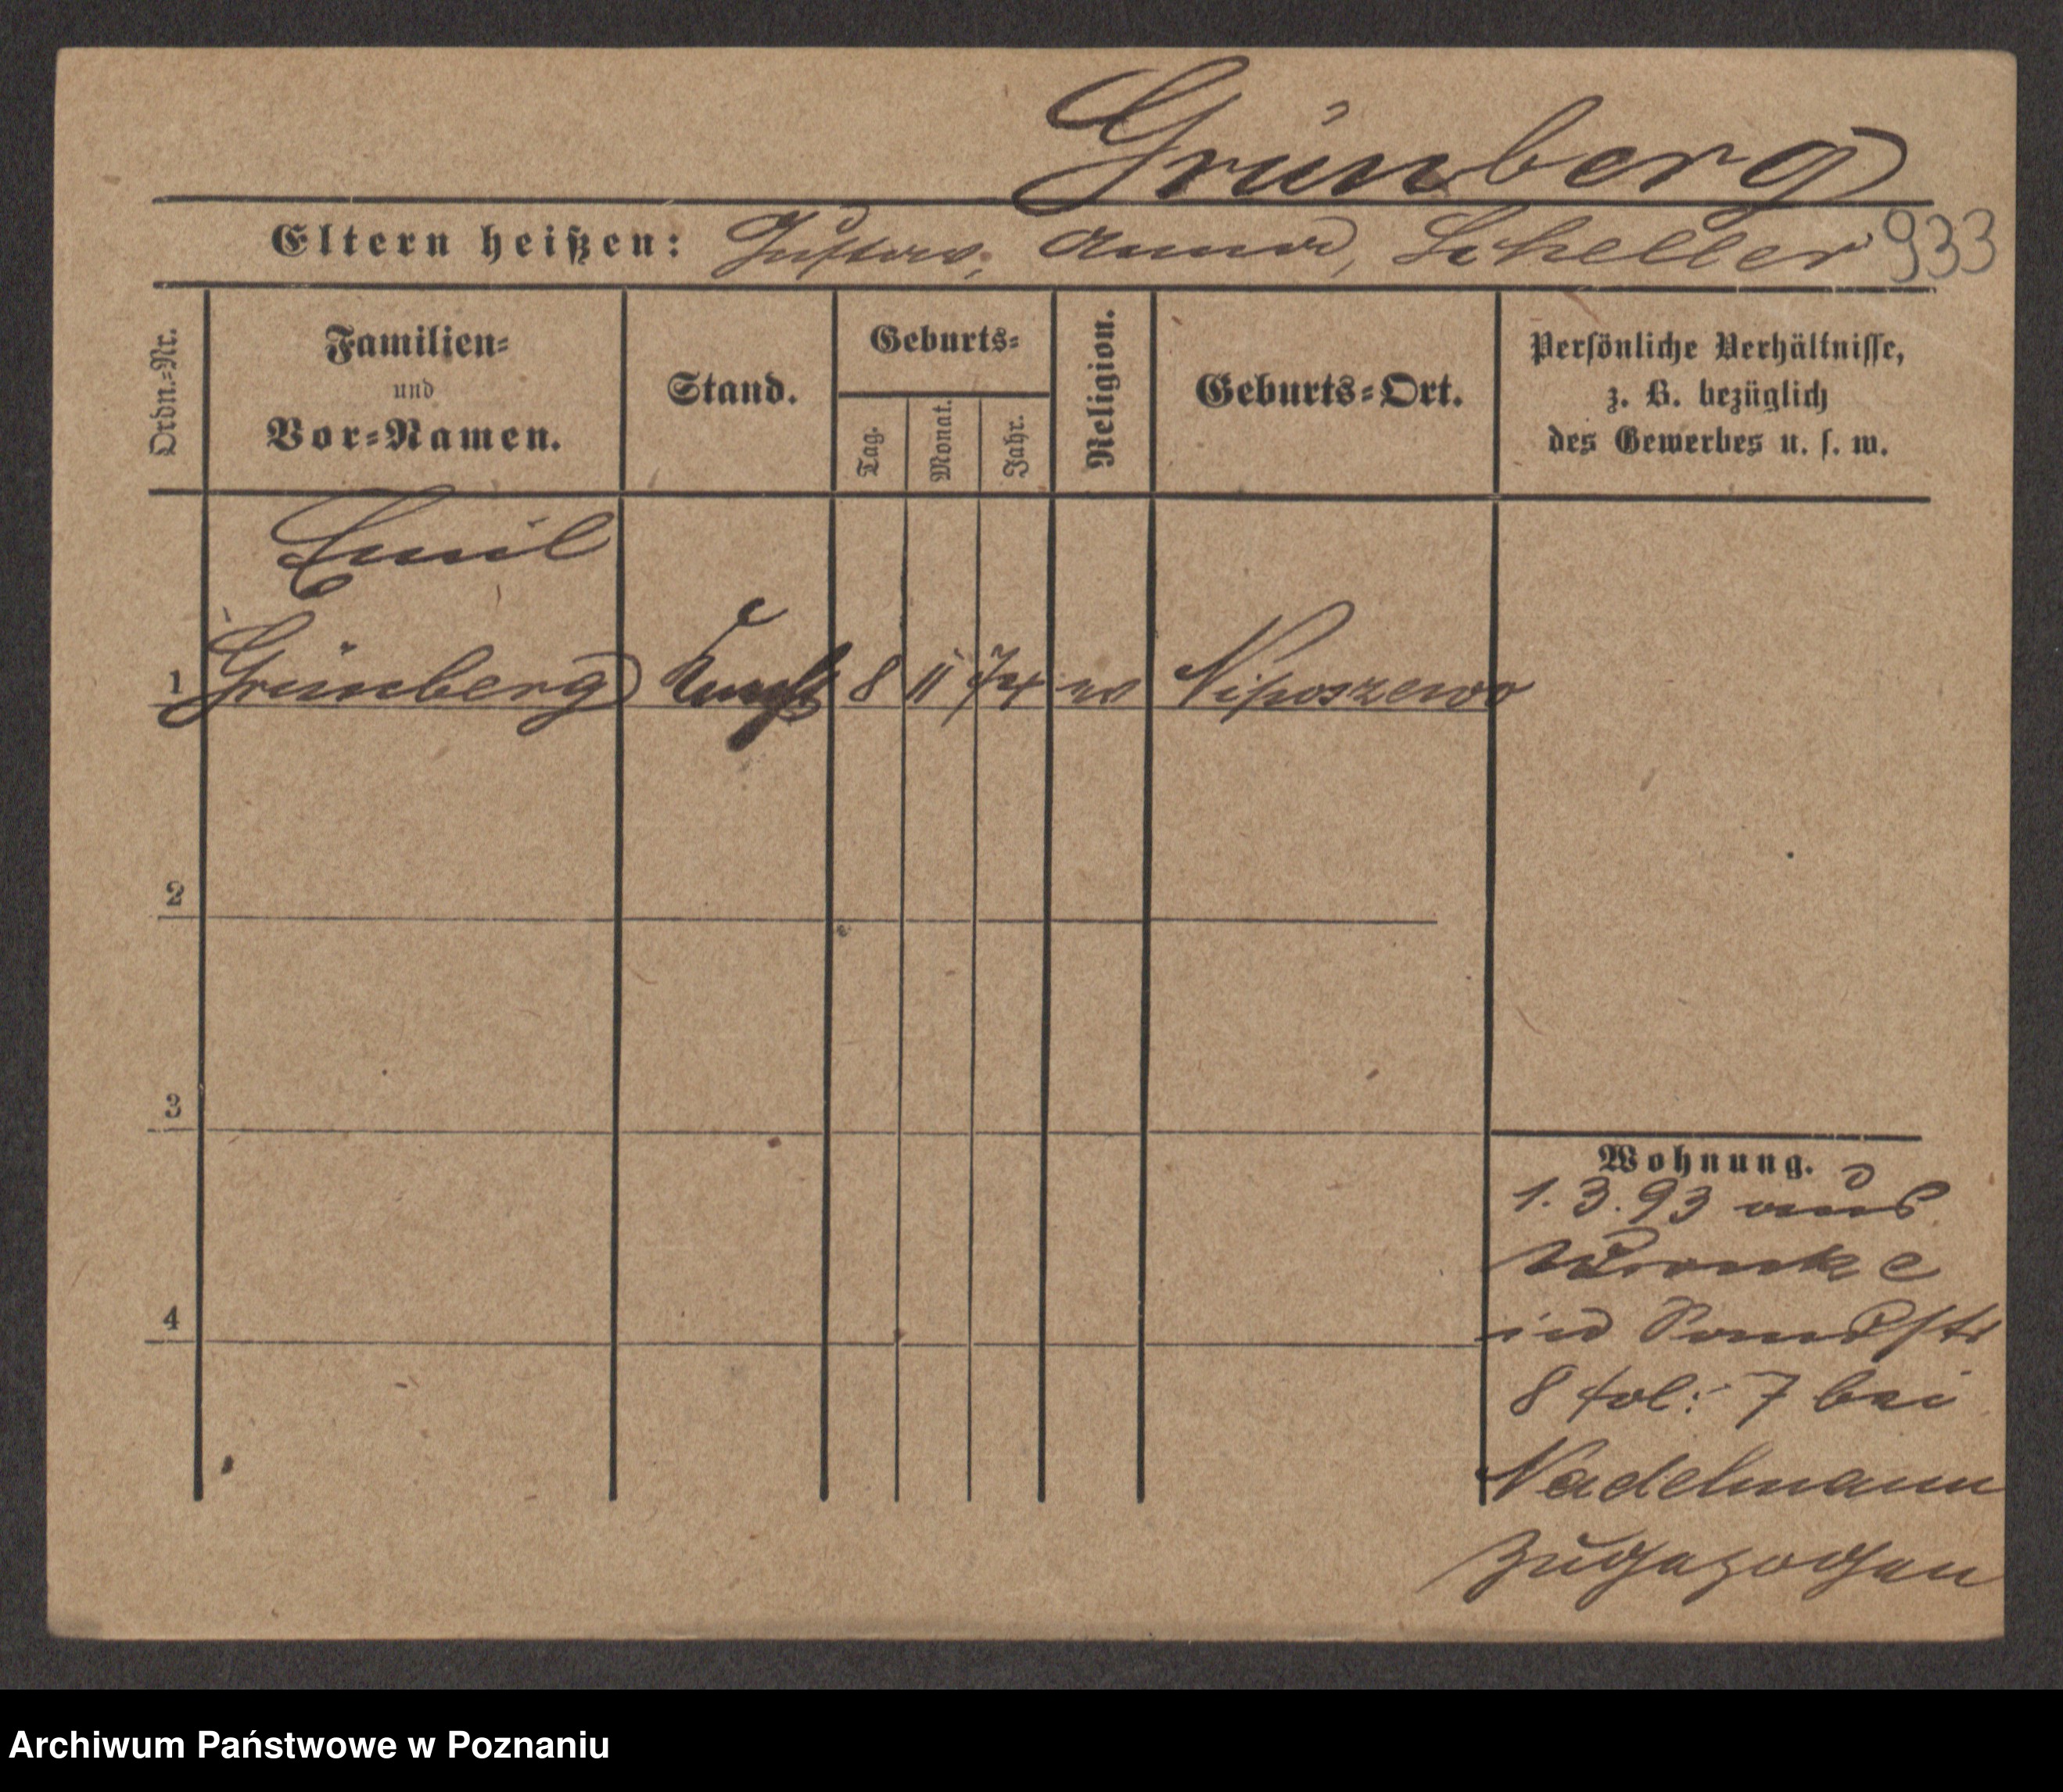 Grünberg
Eltern heißen: Gustav, Anna, Scheller 933
Ordn.-Nr.
Familien-
und
Vor-Namen.
Stand.
Geburts-
Tag.
Monat.
Jahr.
Religion.
Geburts-Ort.
Persönliche Verhältnisse,
z. B. bezüglich
des Gewerbes u. s. w.
Emil
1 Grünberg 8 11 74
2
3
4
Wohnung.
1.3.93 aus
Wronke
in
8 7 bei
Nadelmann
zugezogen
Archiwum Państwowe w Poznaniu